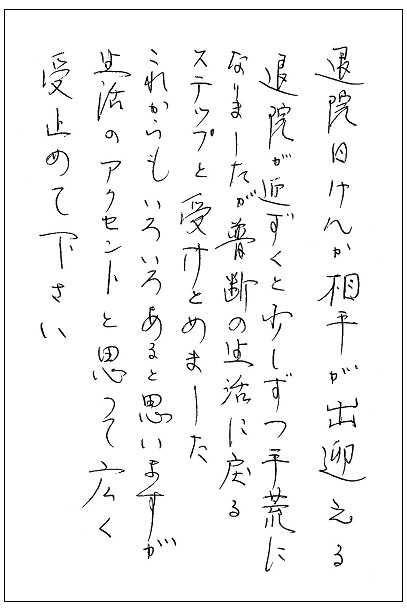 退院日けんか相手が出迎える
退院が近ずくと少しずつ手荒に
なりましたが普断の生活に戻る
ステップと受けとめました
これからもいろいろあると思いますが
生活のアクセントと思って広く
受止めて下さい